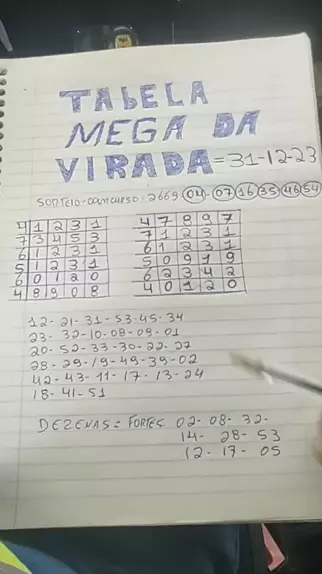 TABELA
MEGA DA
VIRADA = 31-12-23
SORTEIO - CONCURSO: 2669 - 04 - 07 16 35 46 54
4 1 2 3 1
7 3 4 5 3
6 1 2 3 1
5 1 2 3 1
6 0 1 2 0
4 8 9 0 8
4 7 8 9 7
7 1 2 3 1
6 1 2 3 1
5 0 9 1 9
6 2 3 4 2
4 0 1 2 0
12 - 21 - 31 - 53 - 45 - 34
23 - 32 - 10 - 08 - 09 - 01
20 - 52 - 33 - 30 - 22 - 27
28 - 29 - 19 - 49 - 39 - 02
42 - 43 - 11 - 17 - 13 - 24
18 - 41 - 51
DEZENAS = FORTES 02 - 08 - 32 -
14 - 28 - 53
12 - 17 - 05